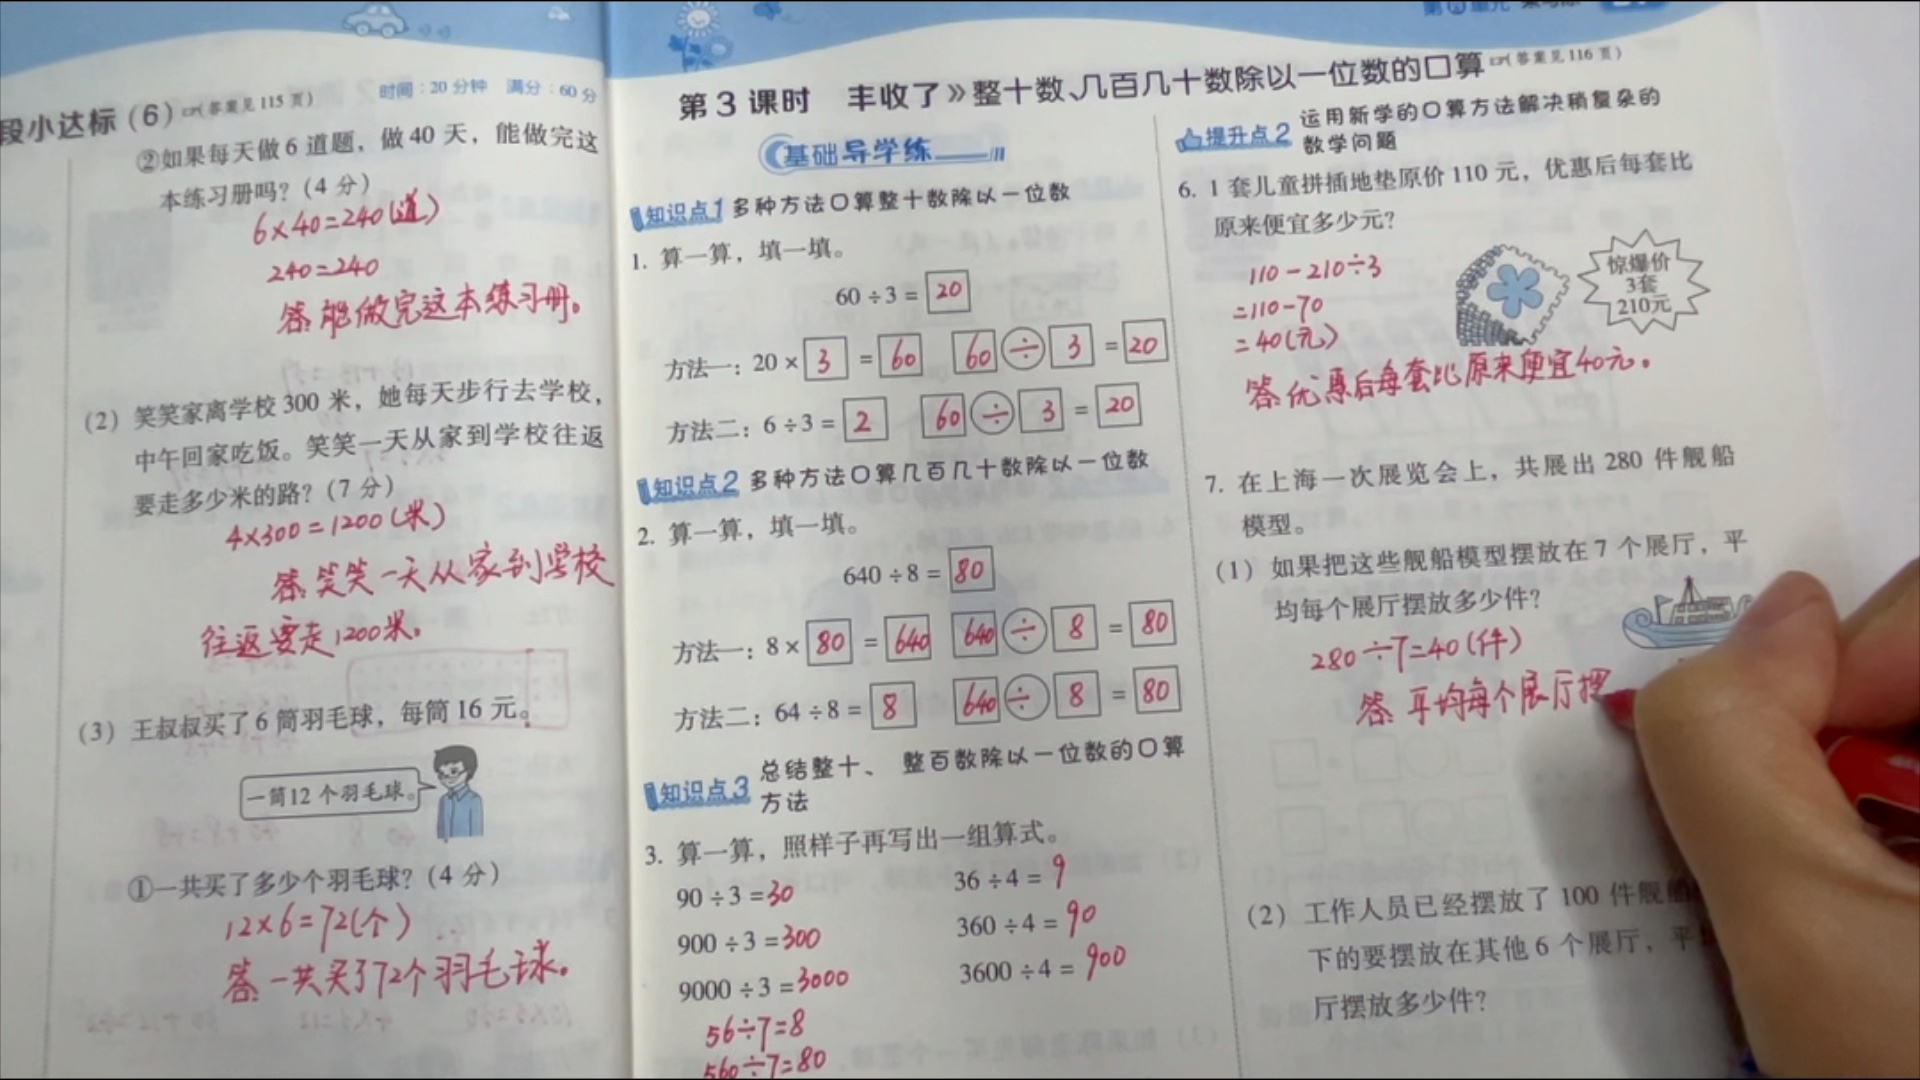 段小达标(6)(答案见115页) 时间:20分钟 满分:60分
②如果每天做6道题，做40天，能做完这
本练习册吗?(4分)
6×40=240(道)
240=240
答:能做完这本练习册。
(2) 笑笑家离学校300米，她每天步行去学校，
中午回家吃饭。笑笑一天从家到学校往返
要走多少米的路?(7分)
4×300=1200(米)
答:笑笑一天从家到学校
往返要走1200米。
(3) 王叔叔买了6筒羽毛球，每筒16元。
一筒12个羽毛球。
①一共买了多少个羽毛球?(4分)
12×6=72(个)
答:一共买了72个羽毛球。
第3课时 丰收了》整十数、几百几十数除以一位数的口算(答案见116页)
基础导学练
知识点1 多种方法口算整十数除以一位数
1. 算一算，填一填。
60÷3=20
方法一：20×3=60 60÷3=20
方法二：6÷3=2 60÷3=20
知识点2 多种方法口算几百几十数除以一位数
2. 算一算，填一填。
640÷8=80
方法一：8×80=640 640÷8=80
方法二：64÷8=8 640÷8=80
知识点3 总结整十、整百数除以一位数的口算
方法
3. 算一算，照样子再写出一组算式。
90÷3=30 36÷4=9
900÷3=300 360÷4=90
9000÷3=3000 3600÷4=900
56÷7=8
560÷7=80
提升点2 运用新学的口算方法解决稍复杂的
数学问题
6. 1套儿童拼插地垫原价110元，优惠后每套比
原来便宜多少元?
110-210÷3
=110-70
=40(元)
惊爆价
3套
210元
答:优惠后每套比原来便宜40元。
7. 在上海一次展览会上，共展出280件舰船
模型。
(1) 如果把这些舰船模型摆放在7个展厅，平
均每个展厅摆放多少件?
280÷7=40(件)
答:平均每个展厅摆
(2) 工作人员已经摆放了100件舰船
下的要摆放在其他6个展厅，平
厅摆放多少件?